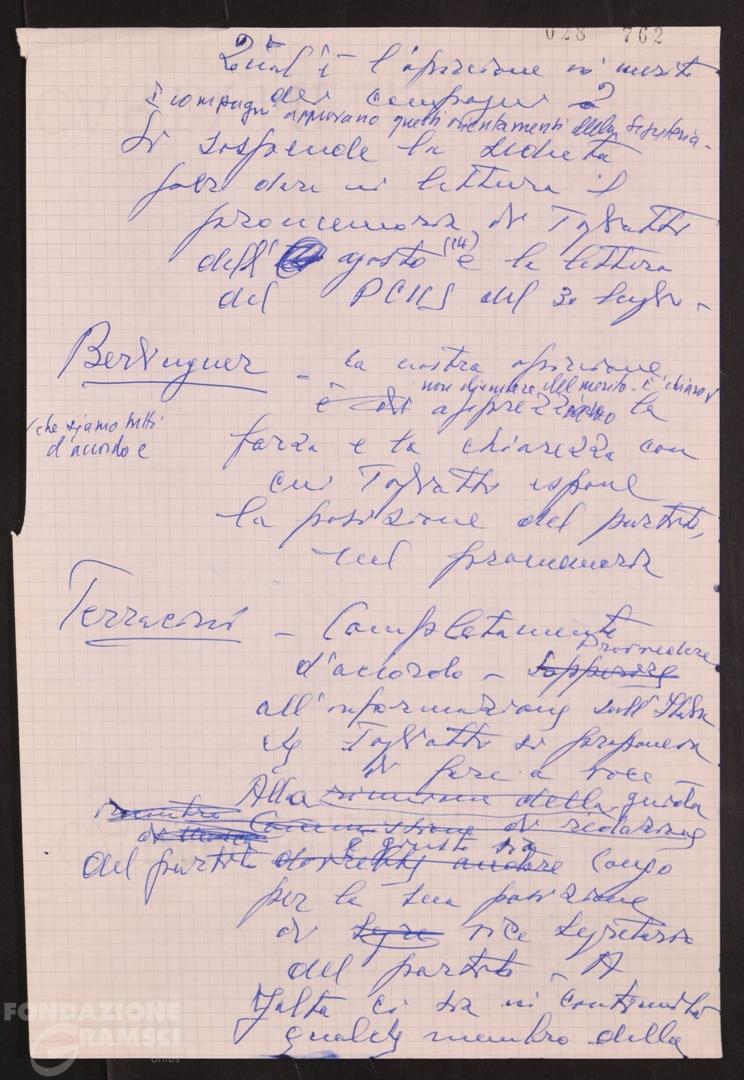 028 762
Qual è l'opinione in merito
dei compagni?
I compagni approvano questi orientamenti della segreteria.
Si sospende la seduta
per dare in lettura il
promemoria di Togliatti
dell' agosto (14) e la lettera
del PCUS del 30 luglio -
Berlinguer - La nostra opinione
non di merito. è chiaro
che siamo tutti
d'accordo e
è di apprezziamo la
forza e la chiarezza con
cui Togliatti espone
la posizione del partito,
nel promemoria
Terracini - Completamente
d'accordo - Sopperire provvedere
all'informazione sull'Italia
che Togliatti si proponeva
di fare a voce -
Alla riunione della guida
Commissione di redazione
del partito dovrebbe andare è giusto sia Longo
per la sua posizione
di Segre vice segretario
del partito - A
Yalta ci sia in continuità
qualche membro della
FONDAZIONE
GRAMSCI
onlus